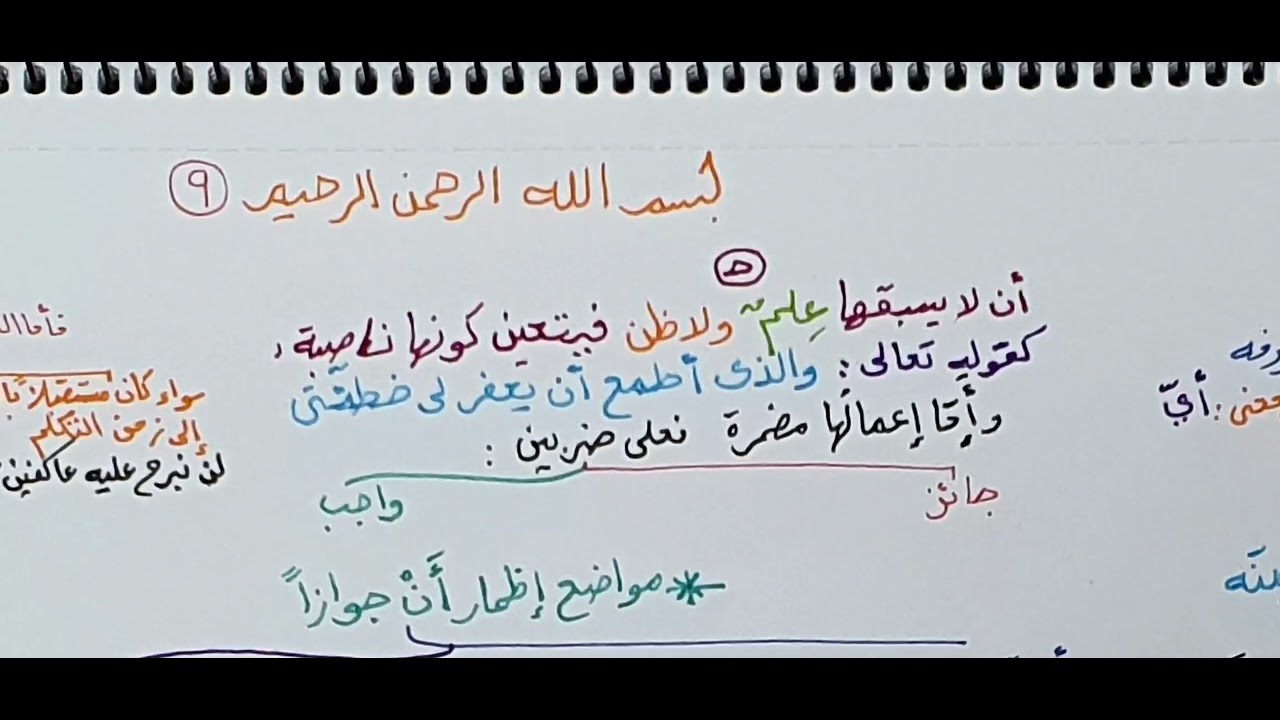 بسم الله الرحمن الرحيم ٩
هـ
أن لا يسبقها عِلم ولا ظن فيتعين كونها ناصبة،
كقوله تعالى: والذى أطمع أن يغفر لى خطيئتى
وأما إعمالها مضمرة فعلى ضربين:
جائز
واجب
* مواضع إظمار أَنْ جوازاً
رفه
معنى: أيّ
سواء كان مستقبلاً
إلى زمن التكلم
لن نبرح عليه عاكفين